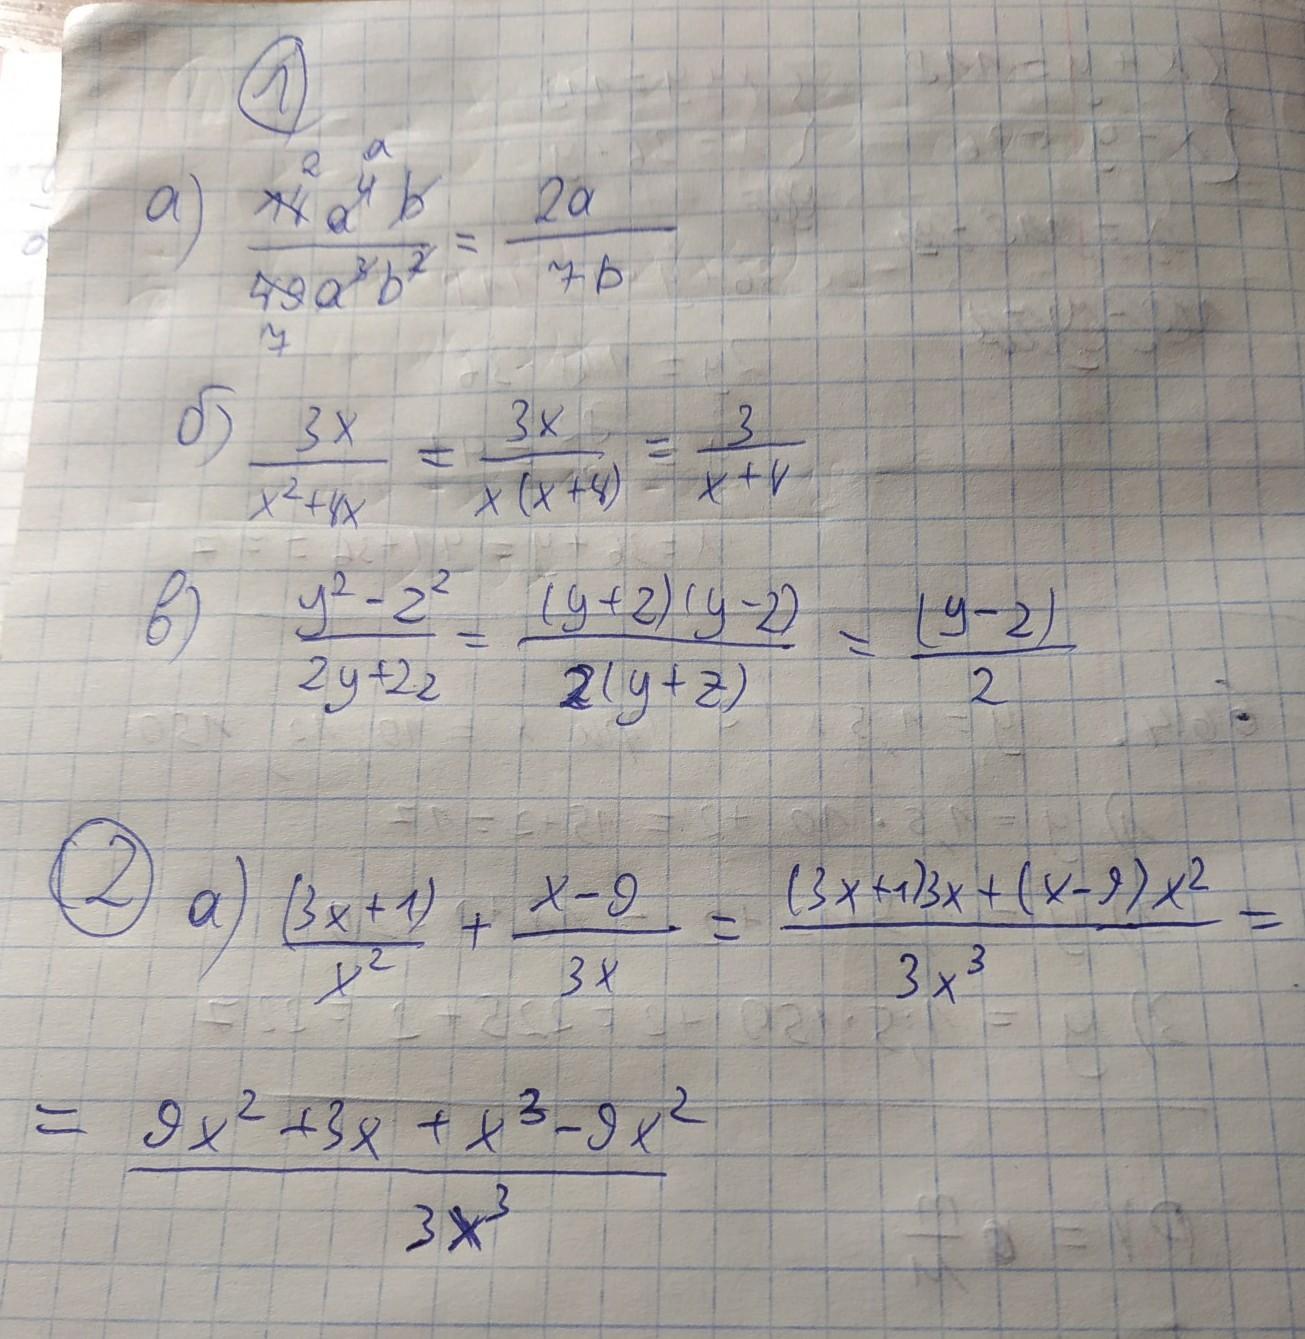 1
а) 14a⁴b / 49a³b² = 2a / 7b
б) 3x / x²+4x = 3x / x(x+4) = 3 / x+4
в) y²-z² / 2y+2z = (y+z)(y-z) / 2(y+z) = (y-z) / 2
2 а) (3x+1) / x² + x-9 / 3x = (3x+1)3x+(x-9)x² / 3x³ =
= 9x²+3x+x³-9x² / 3x³